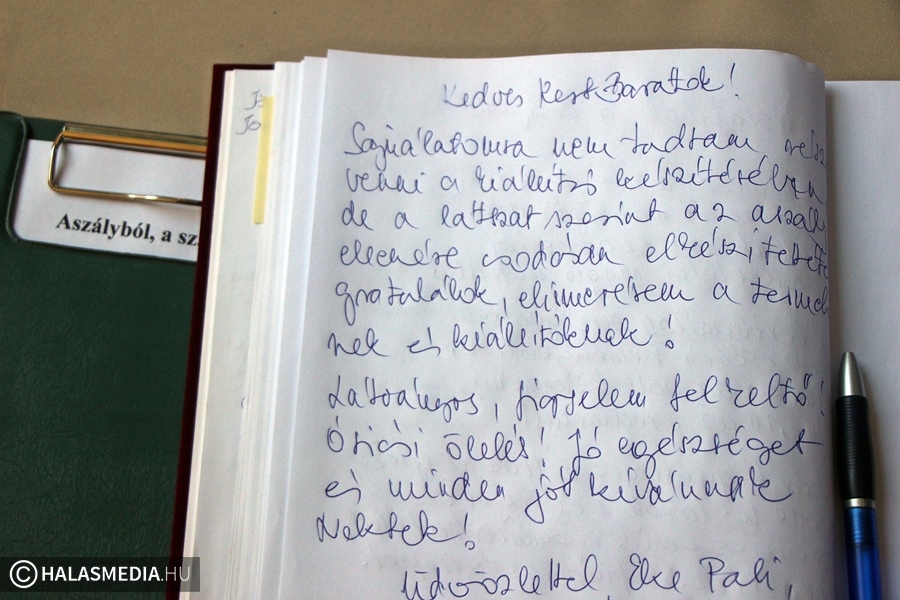 Kedves Kert Barátok!
Sajnálatomra nem tudtam rész
venni a kiállitó készítésében
de a látszat szerint az aszály
ellenére csodásan elkészítetté
gratulálok, elismerésem a termel
nek és kiállítóknak!
Látványos, figyelem felkeltő!
Óriási ölelés! Jó egészséget
és minden jót kívánunk
Nektek!
Üdvözlettel, Pali,
Aszályból, a sz
Jó
© HALASMEDIA.HU